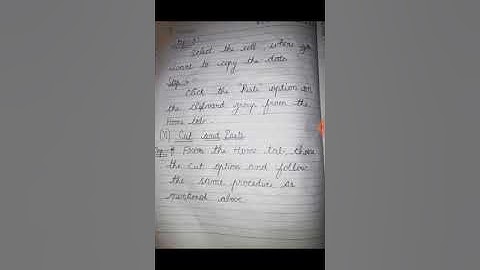 Select the cell, where you
want to copy the data
Step
Click the "Paste" option in
the clipboard group from the
Home tab.
Cut and Paste
From the Home tab, choose
the cut option and follow
the same procedure as
mentioned above